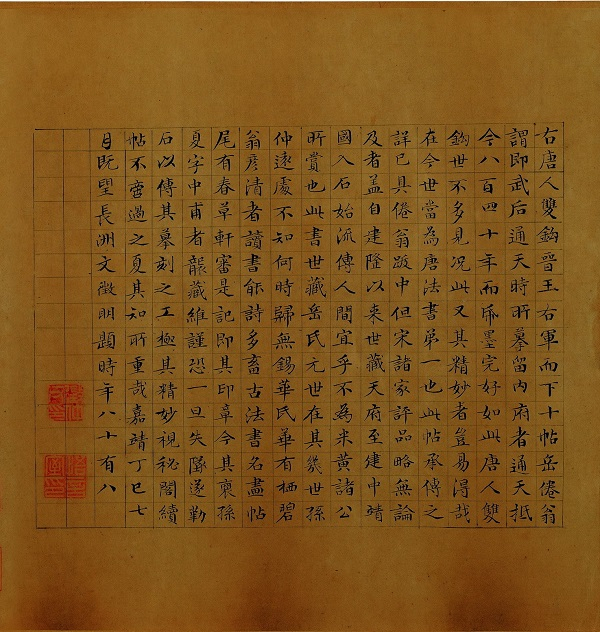 右唐人雙鈎晉王右軍而下十帖岳倦翁
謂即武后通天時所摹留內府者通天抵
今八百四十年而𥿄墨完好如此唐人雙
鈎世不多見况此又其精妙者豈易得哉
在今世當為唐法書第一也此帖承傳之
詳已具倦翁跋中但宋諸家評品略無論
及者盖自建隆以來世藏天府至建中靖
國入石始流傳人間宜乎不為米黃諸公
所賞也此書世藏岳氏元世在其幾世孫
仲遠處不知何時歸無錫華氏華有栖碧
翁彥清者讀書能詩多畜古法書名畫帖
尾有春草軒審是記即其印章今其裔孫
夏字中甫者龍藏維謹恐一旦失墜遂勒
石以傳其摹刻之工極其精妙視秘閣續
帖不啻過之夏其知所重哉嘉靖丁巳七
月既望長洲文徵明題時年八十有八